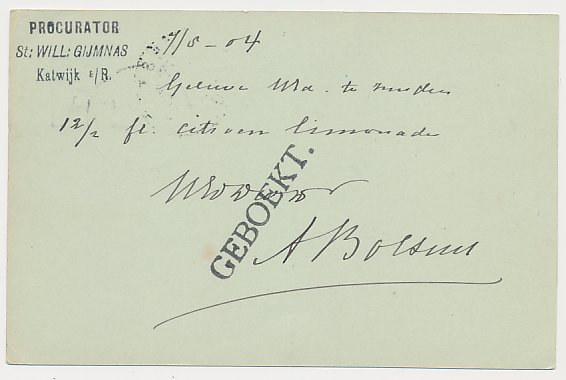 PROCURATOR
St: WILL: GIJMNAS
Katwijk a/R.
7/5-04
Gelieve Uwd. te zenden
12/2 fl. citroen limonade
GEBOEKT.
A Bolsius